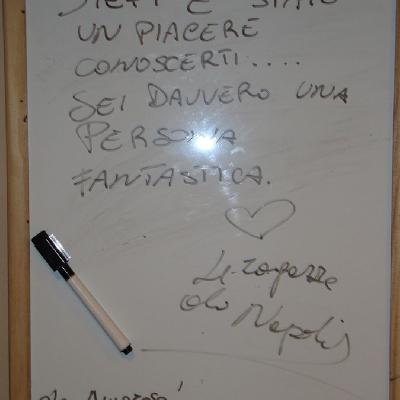 È STATO
UN PIACERE
CONOSCERTI....
SEI DAVVERO UNA
PERSONA
FANTASTICA.
Le ragazze
da Napoli